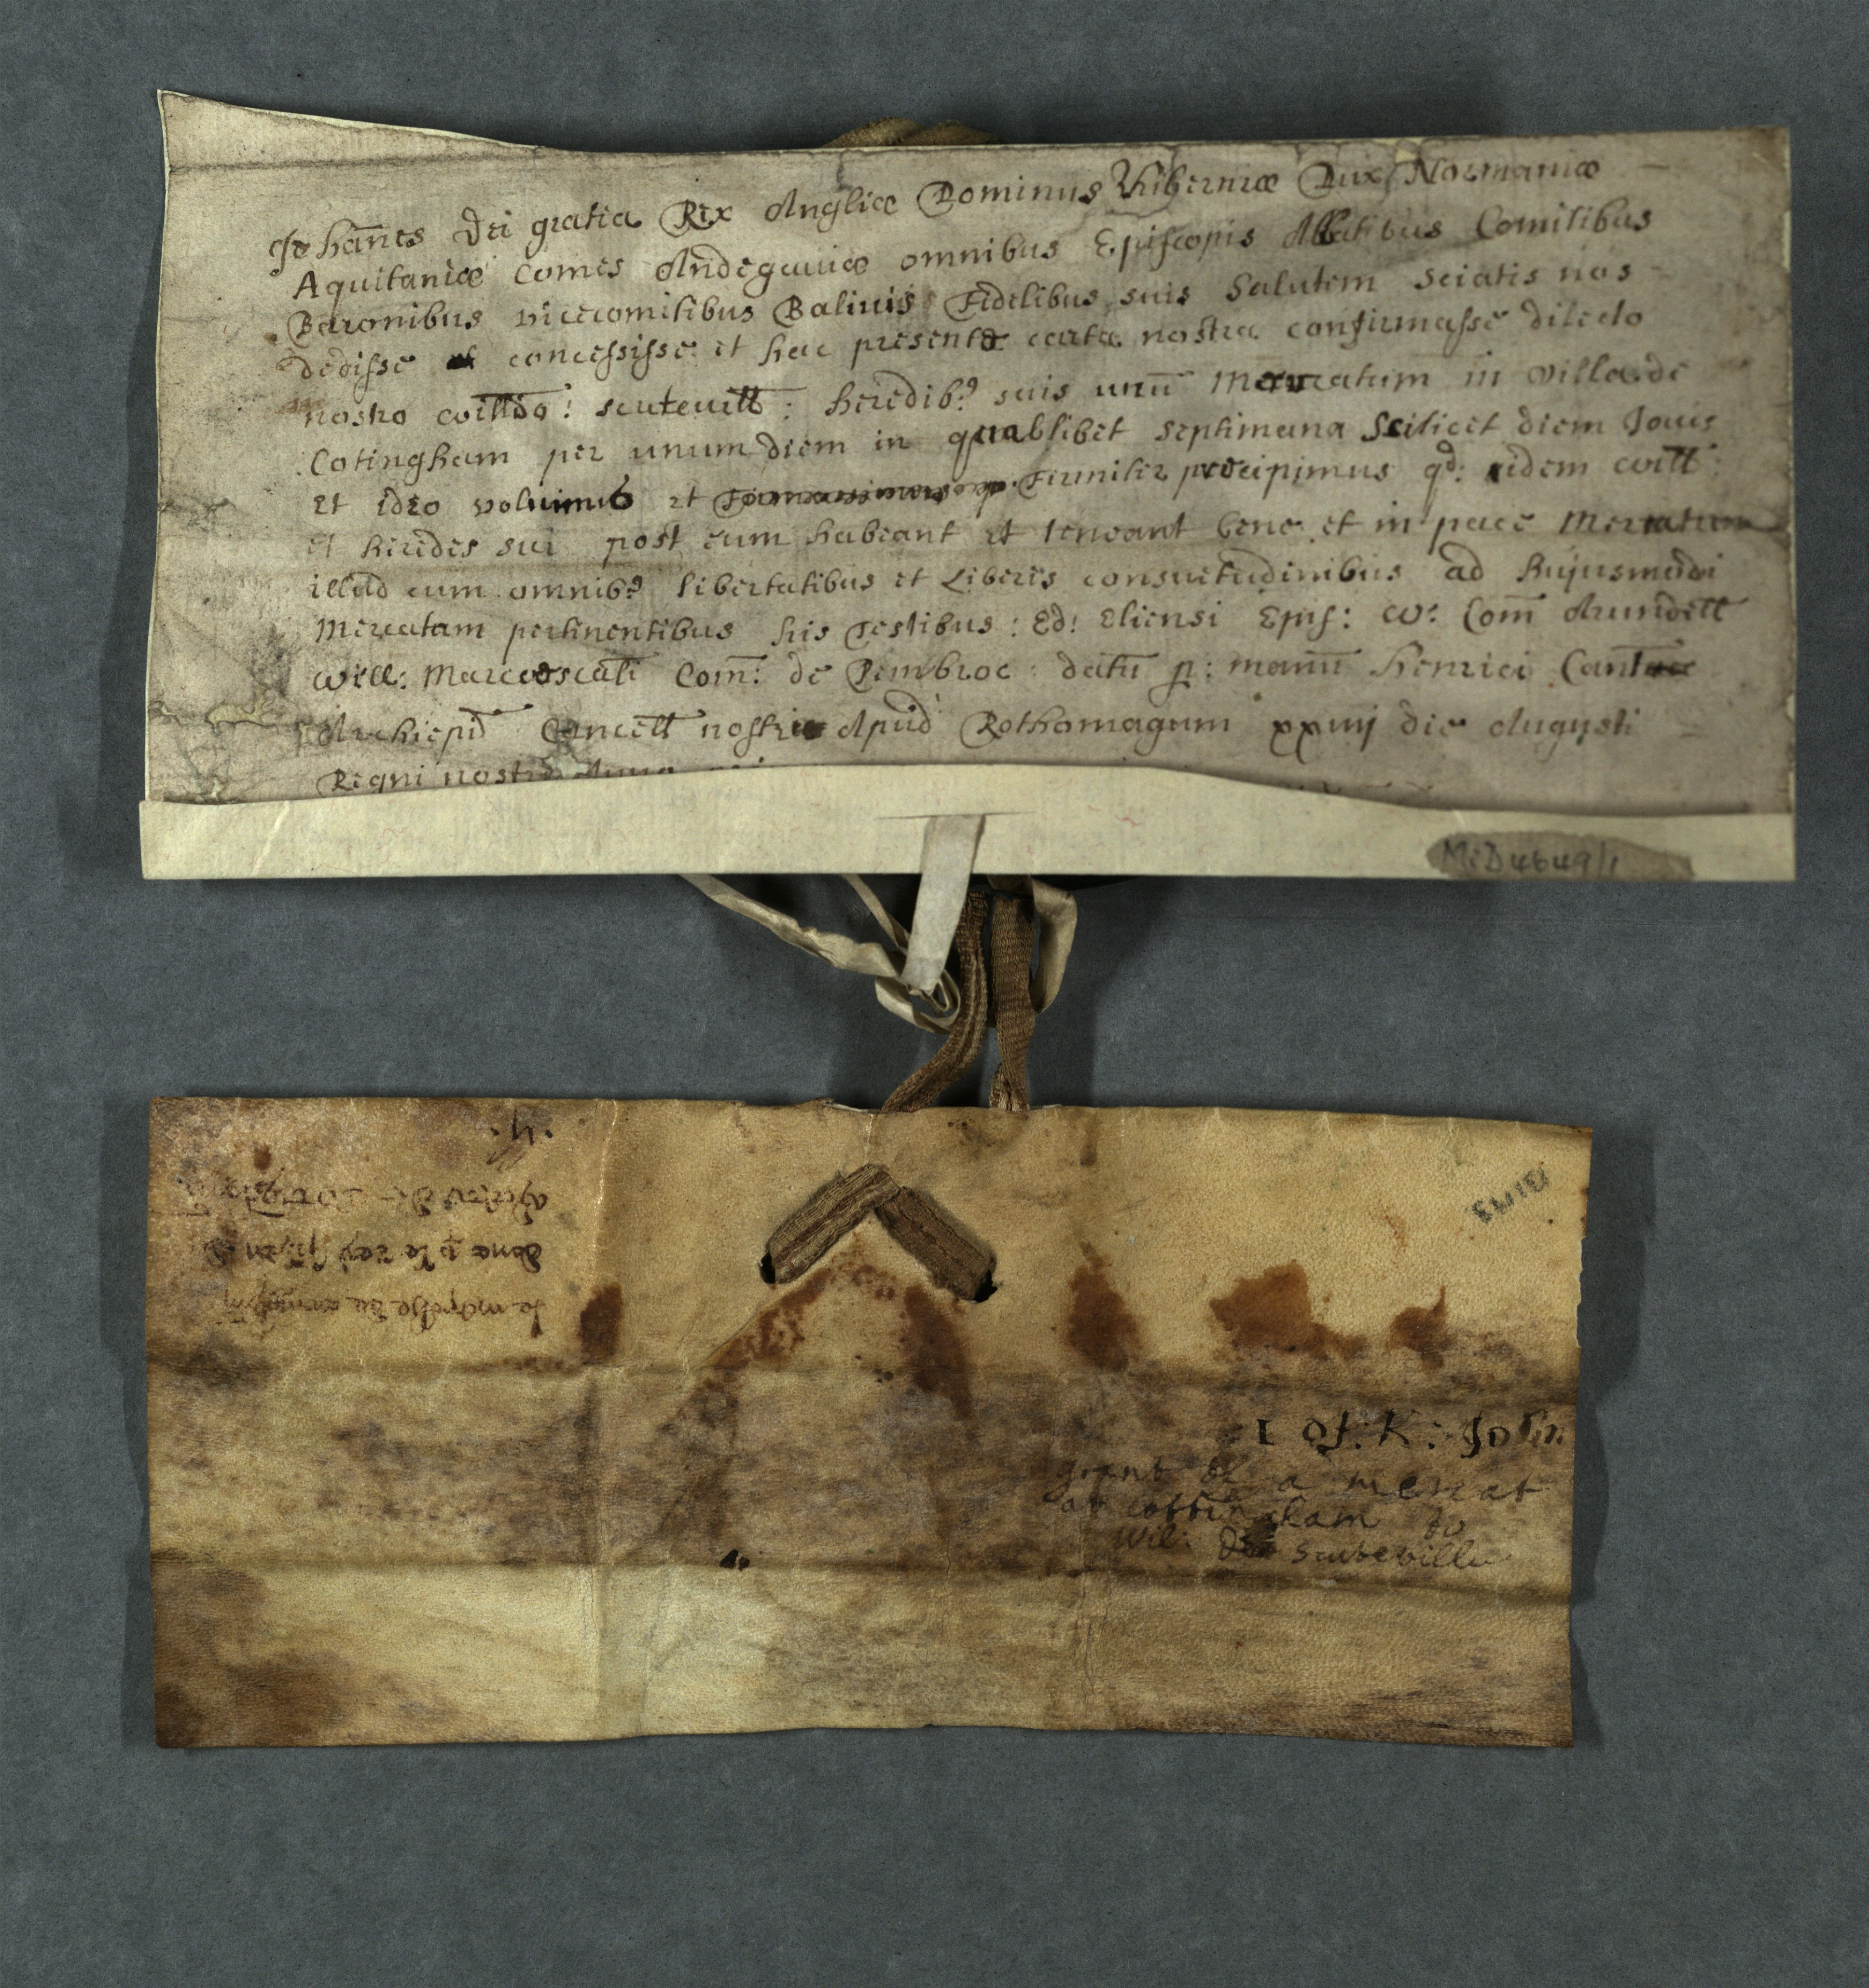 Johan̄es Dei gratia Rex Angliæ Dominus Hiberniæ Dux Normaniæ
Aquitaniæ Comes Andegauiæ omnibus Episcopis Abbatibus Comitibus
Baronibus vicecomitibus Baliuis Fidelibus suis Salutem Sciatis nos
dedisse et concessisse et hac presente carta nostra confirmasse dilecto
nostro Heredib9 suis unū Mercatum in villa de
Cotingham per unum diem in qualibet septimana Scilicet diem Jouis
Et ideo volumus et Firmiter precipimus qd: idem Will:
et heredes sui post eum habeant et teneant bene et in pace Mercatum
illud cum omnib9 libertatibus et Liberis consuetudinibus ad hujusmodi
Mercatam pertinentibus his Testibus: Ed: Eliensi Epis: W: Com̄ Arundell
Will: Com̄: de Pembroc: datū p: manū Henrici
Archiepi Cancell nostri Apud Rothomagum xxiiij die Augusti
Regni nostri
M:D4649/1
·4·
done p le roy
le
1 of: K: John
grant of a mercat
at cottingham to
Wil: de Stutevilla